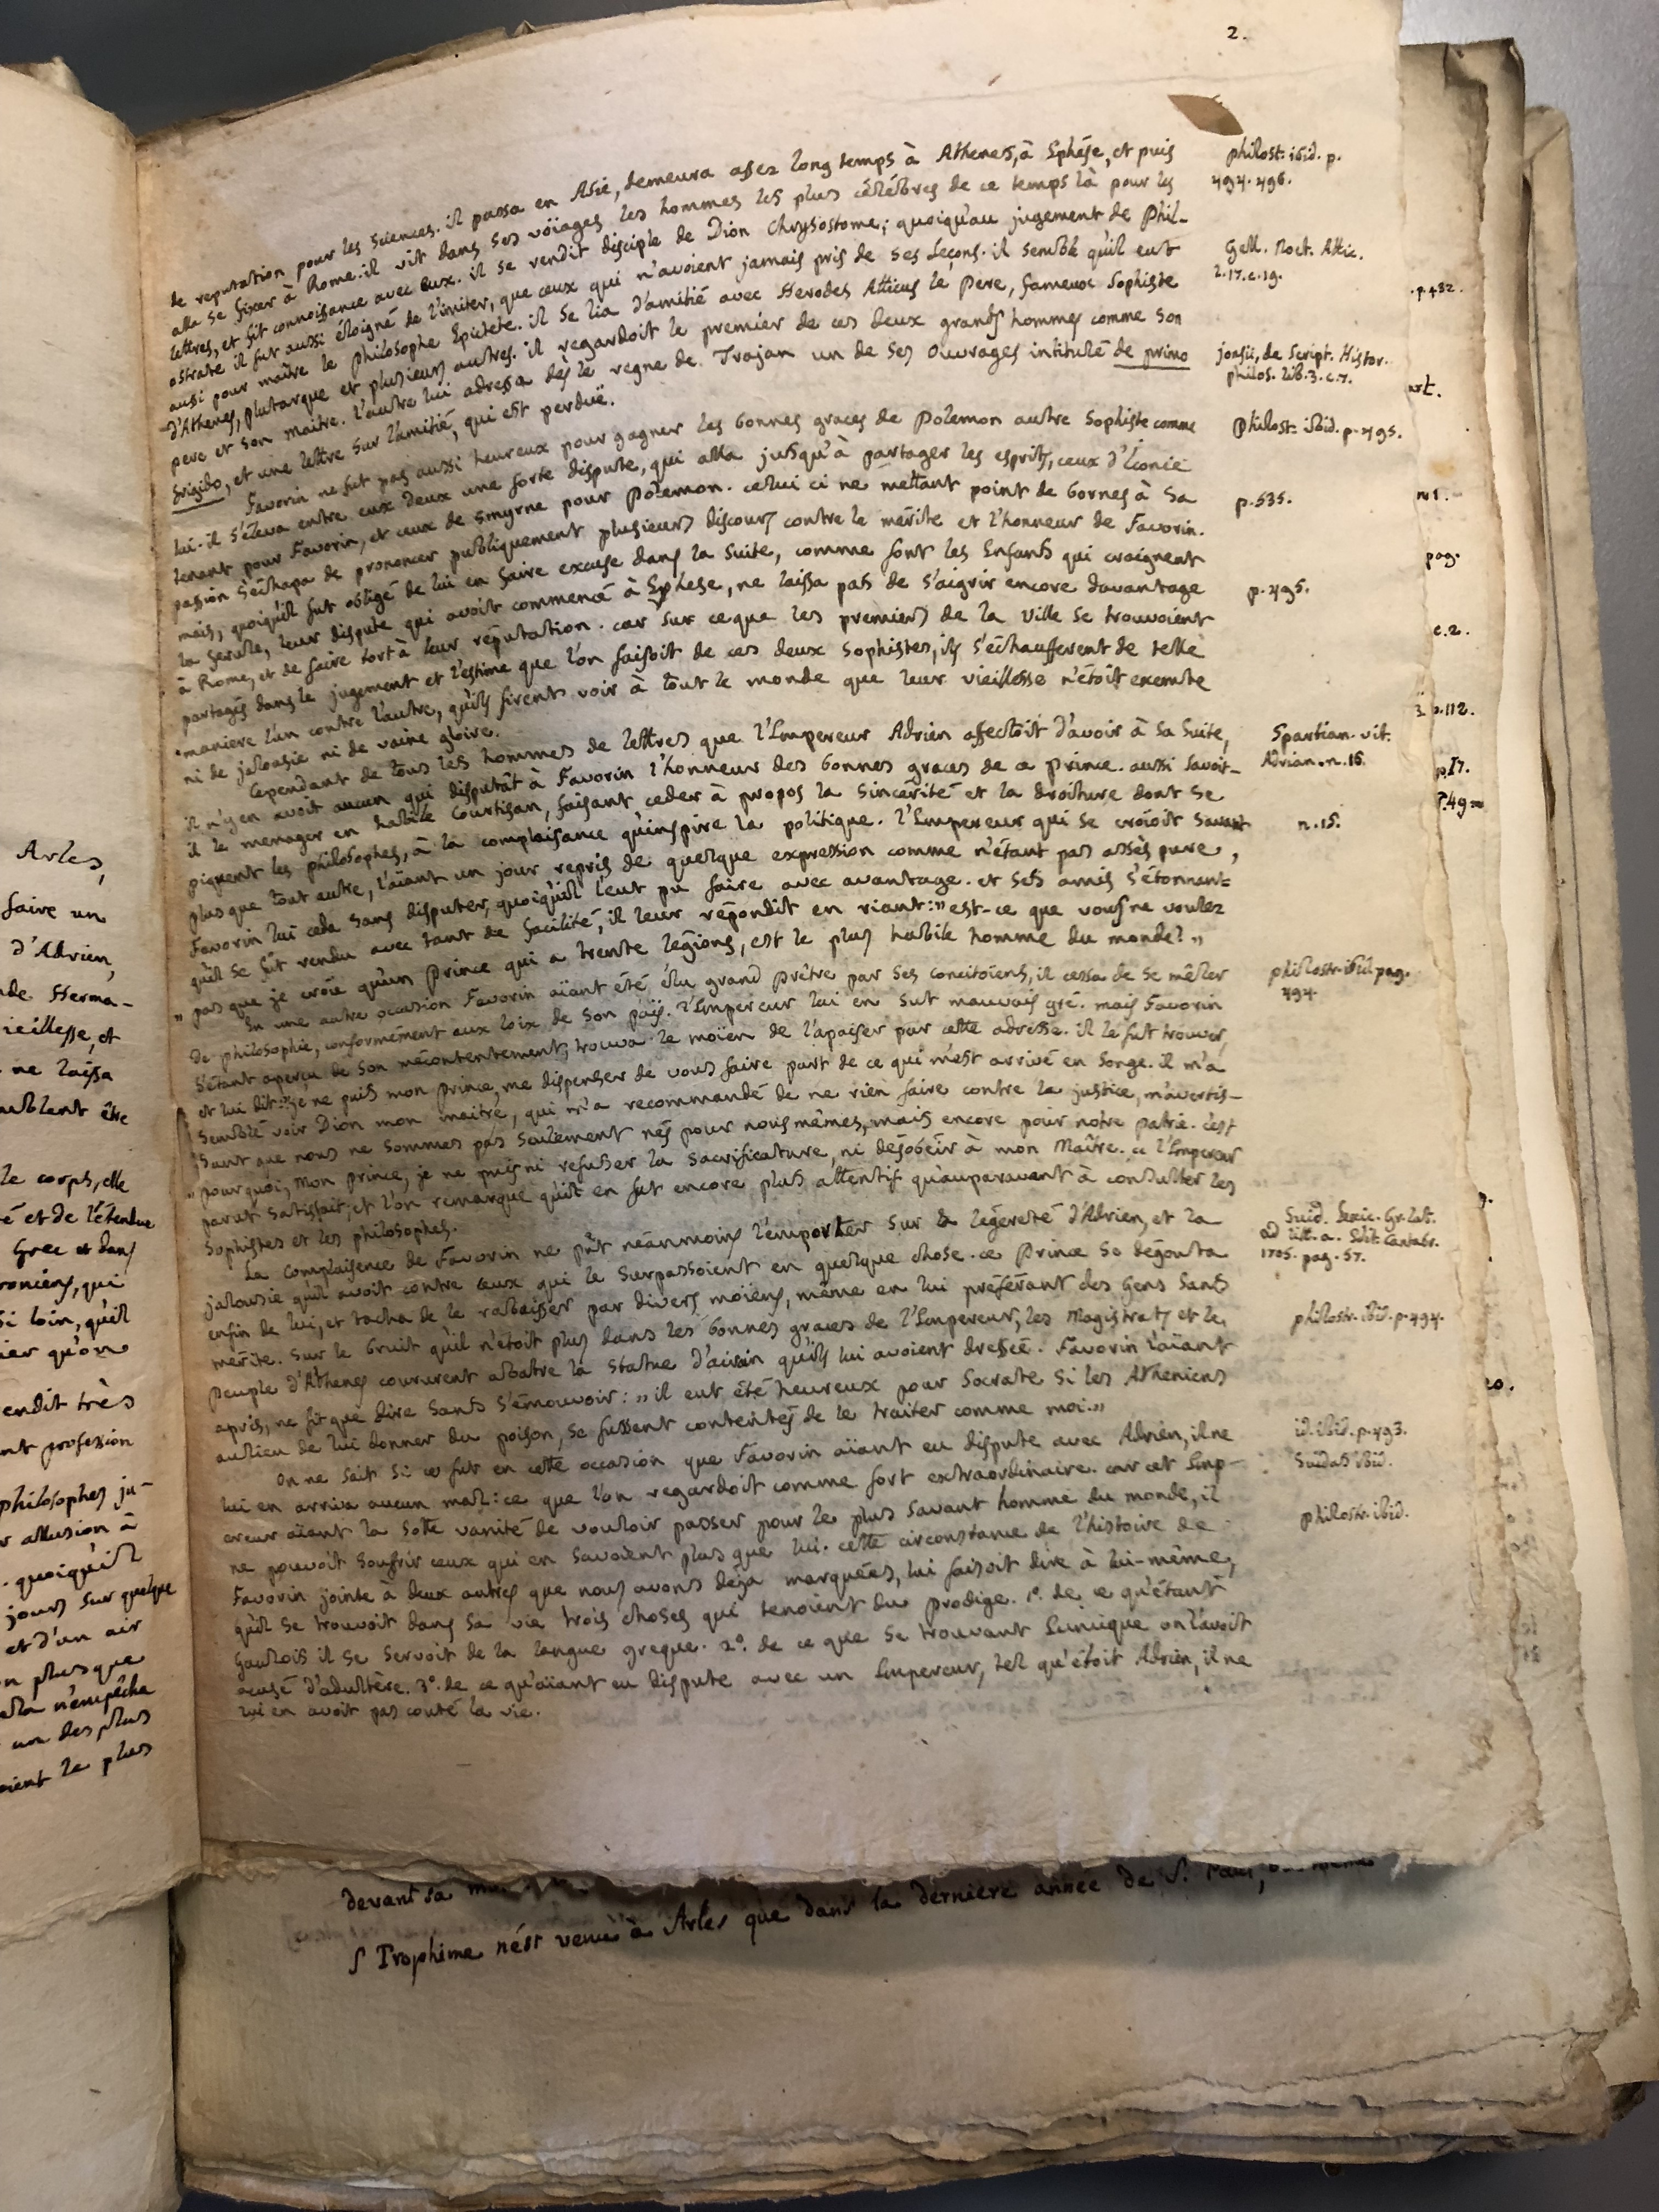 2.
de reputation pour les sciences. il passa en Asie, demeura assez long temps à Athenes, à Ephése, et puis
alla se fixer à Rome. il vit dans ses voïages les hommes les plus célébres de ce temps là pour les
lettres, et fit connoissance avec eux. il se rendit disciple de Dion Chrysostome; quoiqu'au jugement de Phil-
ostrate il fut aussi éloigné de l'imiter, que ceux qui n'avoient jamais pris de ses leçons. il semble qu'il eut
aussi pour maître le philosophe Epictete. il se lia d'amitié avec Herodes Atticus le Pere, fameux Sophiste
d'Athenes, plutarque et plusieurs autres. il regardoit le premier de ces deux grands hommes comme son
pere et son maitre. l'autre lui adressa dès le regne de Trajan un de ses ouvrages intitulé de primo
frigido, et une lettre sur l'amitié, qui est perduë.
Favorin ne fut pas aussi heureux pour gagner les bonnes graces de Polemon autre Sophiste comme
lui. il s'éleva entre eux deux une forte dispute, qui alla jusqu'à partager les esprits, ceux d'Ionie
tenant pour Favorin, et ceux de smyrne pour Polemon. celui ci ne mettant point de bornes à sa
passion s'échapa de prononcer publiquement plusieurs discours contre le mérite et l'honneur de Favorin.
mais, quoiqu'il fut obligé de lui en faire excuse dans la suite, comme font les Enfants qui craignent
la ferule, leur dispute qui avoit commencé à Ephese, ne laissa pas de s'aigrir encore davantage
à Rome, et de faire tort à leur réputation. car sur ceque les premiers de la ville se trouvoient
partagés dans le jugement et l'estime que l'on faisoit de ces deux Sophistes, ils s'échaufferent de telle
maniere l'un contre l'autre, qu'ils firent voir à tout le monde que leur vieillesse n'étoit exemte
ni de jalousie ni de vaine gloire.
Cependant de tous les hommes de lettres que l'Empereur Adrien affectoit d'avoir à sa suite,
il n'y en avoit aucun qui disputât à Favorin l'honneur des bonnes graces de ce prince. aussi savoit-
il le menager en habile Courtisan, faisant ceder à propos la sincérité et la droiture dont se
piquent les philosophes, à la complaisance qu'inspire la politique. l'Empereur qui se croïoit savant
plus que tout autre, l'aïant un jour repris de quelque expression comme n'étant pas assés pure,
Favorin lui ceda sans disputer, quoiqu'il l'eut pu faire avec avantage. et ses amis s'étonnant
qu'il se fût rendu avec tant de facilité, il leur répondit en riant: " est-ce que vous ne voulez
" pas que je croïe qu'un Prince qui a trente legions, est le plus habile homme du monde? "
En une autre occasion Favorin aïant été élu grand prêtre par ses concitoïens, il cessa de se mêler
de philosophie, conformément aux loix de son païs. l'Empereur lui en sut mauvais gré. mais Favorin
s'étant aperçu de son mécontentement, trouva le moïen de l'apaiser par cette adresse. il le fut trouver,
et lui dit: " je ne puis mon prince, me dispenser de vous faire part de ce qui m'est arrivé en songe. il m'a
semblé voir Dion mon maitre, qui m'a recommandé de ne rien faire contre la justice, m'avertis-
sant que nous ne sommes pas seulement nés pour nous mêmes, mais encore pour notre patrie. c'est
" pourquoi, mon prince, je ne puis ni refuser la sacrificature, ni desobéir à mon Maître. " l'Empereur
parut satisfait, et l'on remarque qu'il en fut encore plus attentif qu'auparavant à consulter les
Sophistes et les philosophes.
La complaisence de Favorin ne pût néanmoins l'emporter sur la légereté d'Adrien, et la
jalousie qu'il avoit contre ceux qui le surpassoient en quelque chose. ce Prince se dégouta
enfin de lui, et tacha de le rabaisser par divers moïens, même en lui préférant des gens sans
mérite. sur le bruit qu'il n'étoit plus dans les bonnes graces de l'Empereur, les Magistrats et le
peuple d'Athenes coururent abattre la statue d'airain qu'ils lui avoient dressée. Favorin l'aïant
apris, ne fit que dire sans s'émouvoir: " il eut été heureux pour Socrate si les Atheniens
aulieu de lui donner du poison, se fussent contentés de le traiter comme moi. "
On ne sait si ce fut en cette occasion que Favorin aïant eu dispute avec Adrien, il ne
lui en arriva aucun mal: ce que l'on regardoit comme fort extraordinaire. car cet Emp-
ereur aïant la sotte vanité de vouloir passer pour le plus savant homme du monde, il
ne pouvoit soufrir ceux qui en savoient plus que lui. cette circonstance de l'histoire de
Favorin jointe à deux autres que nous avons déja marquées, lui faisoit dire à lui-même,
qu'il se trouvoit dans sa vie trois choses qui tenoient du prodige. 1°. de ce qu'étant
Gaulois il se servoit de la langue greque. 2°. de ce que se trouvant Eunuque on l'avoit
acusé d'adultère. 3°. de ce qu'aïant eu dispute avec un Empereur, tel qu'étoit Adrien, il ne
lui en avoit pas couté la vie.
philost. ibid. p.
494. 496.
Gell. Noct. Attic.
l. 17. c. 19.
jonsii, de Script. Histor.
philos. lib. 3. c. 7.
Philost. ibid. p. 495.
p. 535.
p. 495.
Spartian. vit.
Adrian. n. 16.
n. 15.
philostr. ibid. pag.
494.
Suid. Lexic. Gr. lat.
ad litt. a. Edit. Cantabr.
1705. pag. 57.
philostr. ibid. p. 494.
id. ibid. p. 493.
Suidas ibid.
philostr. ibid.
p. 432.
art.
n 1.
pag.
c. 2.
p. 112.
Arles,
faire un
d'Adrien,
de Herma-
ieillesse, et
ne laissa
semblent être
le corps, elle
é et de l'étendue
Grec et dans
si loin, qu'il
ier qu'on
endit très
nt profession
philosophes ju-
r allusion à
quoiqu'il
jours sur quelque
et d'un air
n plus que
n'empêcha
un des plus
oient le plus
devant sa
S Trophime n'est venu à Arles que dans la derniere année de S.